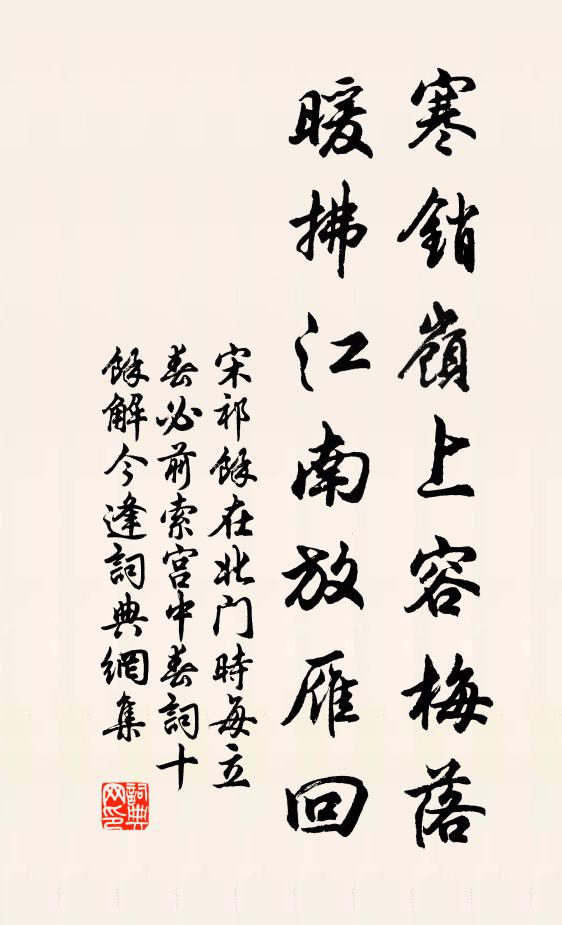 寒銷嶺上容梅落
暖拂江南放雁回
宋祁餘在北门時每立
春必前索宫中春詞十
餘解今逢詞典網集
詞典
网印